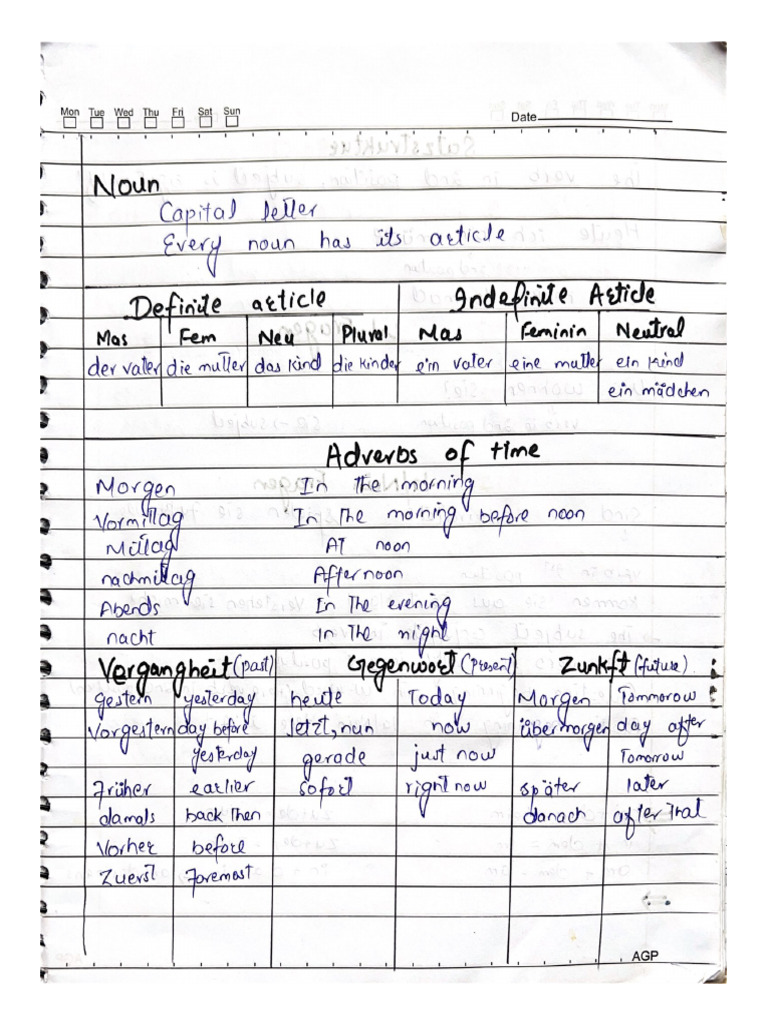 Mon Tue Wed Thu Fri Sat Sun
Date
Noun
Capital letter
Every noun has its article
Definite article Indefinite Article
Mas Fem Neu Plural Mas Feminin Neutral
der vater die mutter das kind die kinder ein vater eine mutter ein kind
ein mädchen
Adverbs of time
Morgen In the morning
Vormittag In the morning before noon
Mittag At noon
nachmittag Afternoon
Abends In the evening
nacht In the night
Vergangheit (past) Gegenwort (present) Zunkft (future)
gestern yesterday heute Today Morgen Tommorow
Vorgestern day before Jetzt, nun now übermorgen day after
yesterday gerade just now Tomorrow
Früher earlier sofort right now später later
damals back then danach after that
Vorher before
Zuerst Foremost
AGP